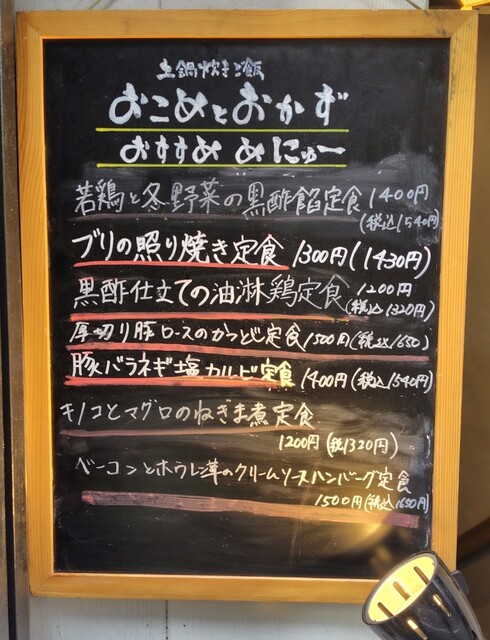 土鍋炊きご飯
おこめとおかず
おすすめ めにゅー
若鶏と冬野菜の黒酢餡定食 1400円
(税込1540円)
ブリの照り焼き定食 1300円(1430円)
黒酢仕立ての油淋鶏定食 1200円
(税込1320円)
厚切り豚ロースのかつとじ定食 1500円(税込1650)
豚バラネギ塩カルビ定食 1400円(税込1540円)
キノコとマグロのねぎま煮定食
1200円(税1320円)
ベーコンとホウレン草のクリームソースハンバーグ定食
1500円(税込1650円)